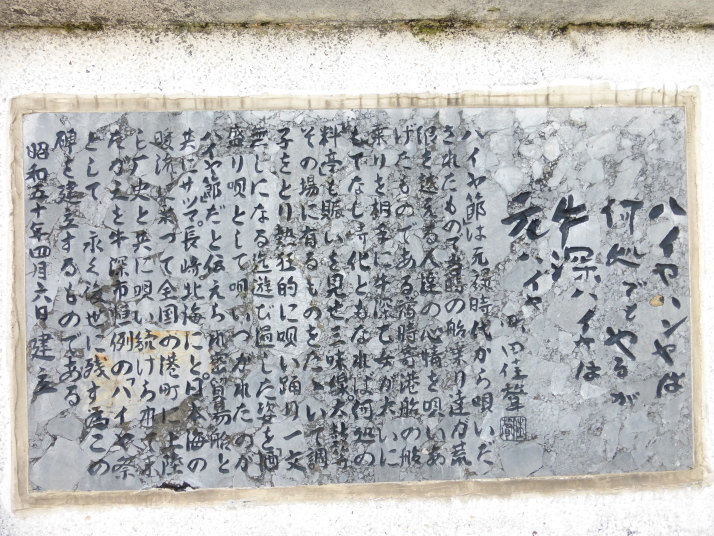 ハイヤハンヤは
何処でもやるが
牛深ハイヤは
元ハイヤ
町田佳聲
ハイヤ節は元禄時代から唄いだ
されたもので当時の船乗り達が荒
浪を越える人達の心情を唄いあ
げたものである 当時寄港船の船
乗りを相手に牛深乙女が大いに
もてなし時化ともなれば何処の
料亭も賑いを見せ三味線太鼓
その場に有るものをたゝいて調
子をとり熱狂的に唄い踊り一文
無しになる迄遊び過した姿を酒
盛り唄として唄いつがれたのが
ハイヤ節だと伝えられ密貿易船と
共にサツマ、長崎北海にと日本海の
暖流に添って全国の港町に上陸
し歴史と共に唄い続けられて
を牛深市恒例の「ハイヤ祭
として 永く後世に残す為この
碑を建立するものである
昭和五十年四月六日建立